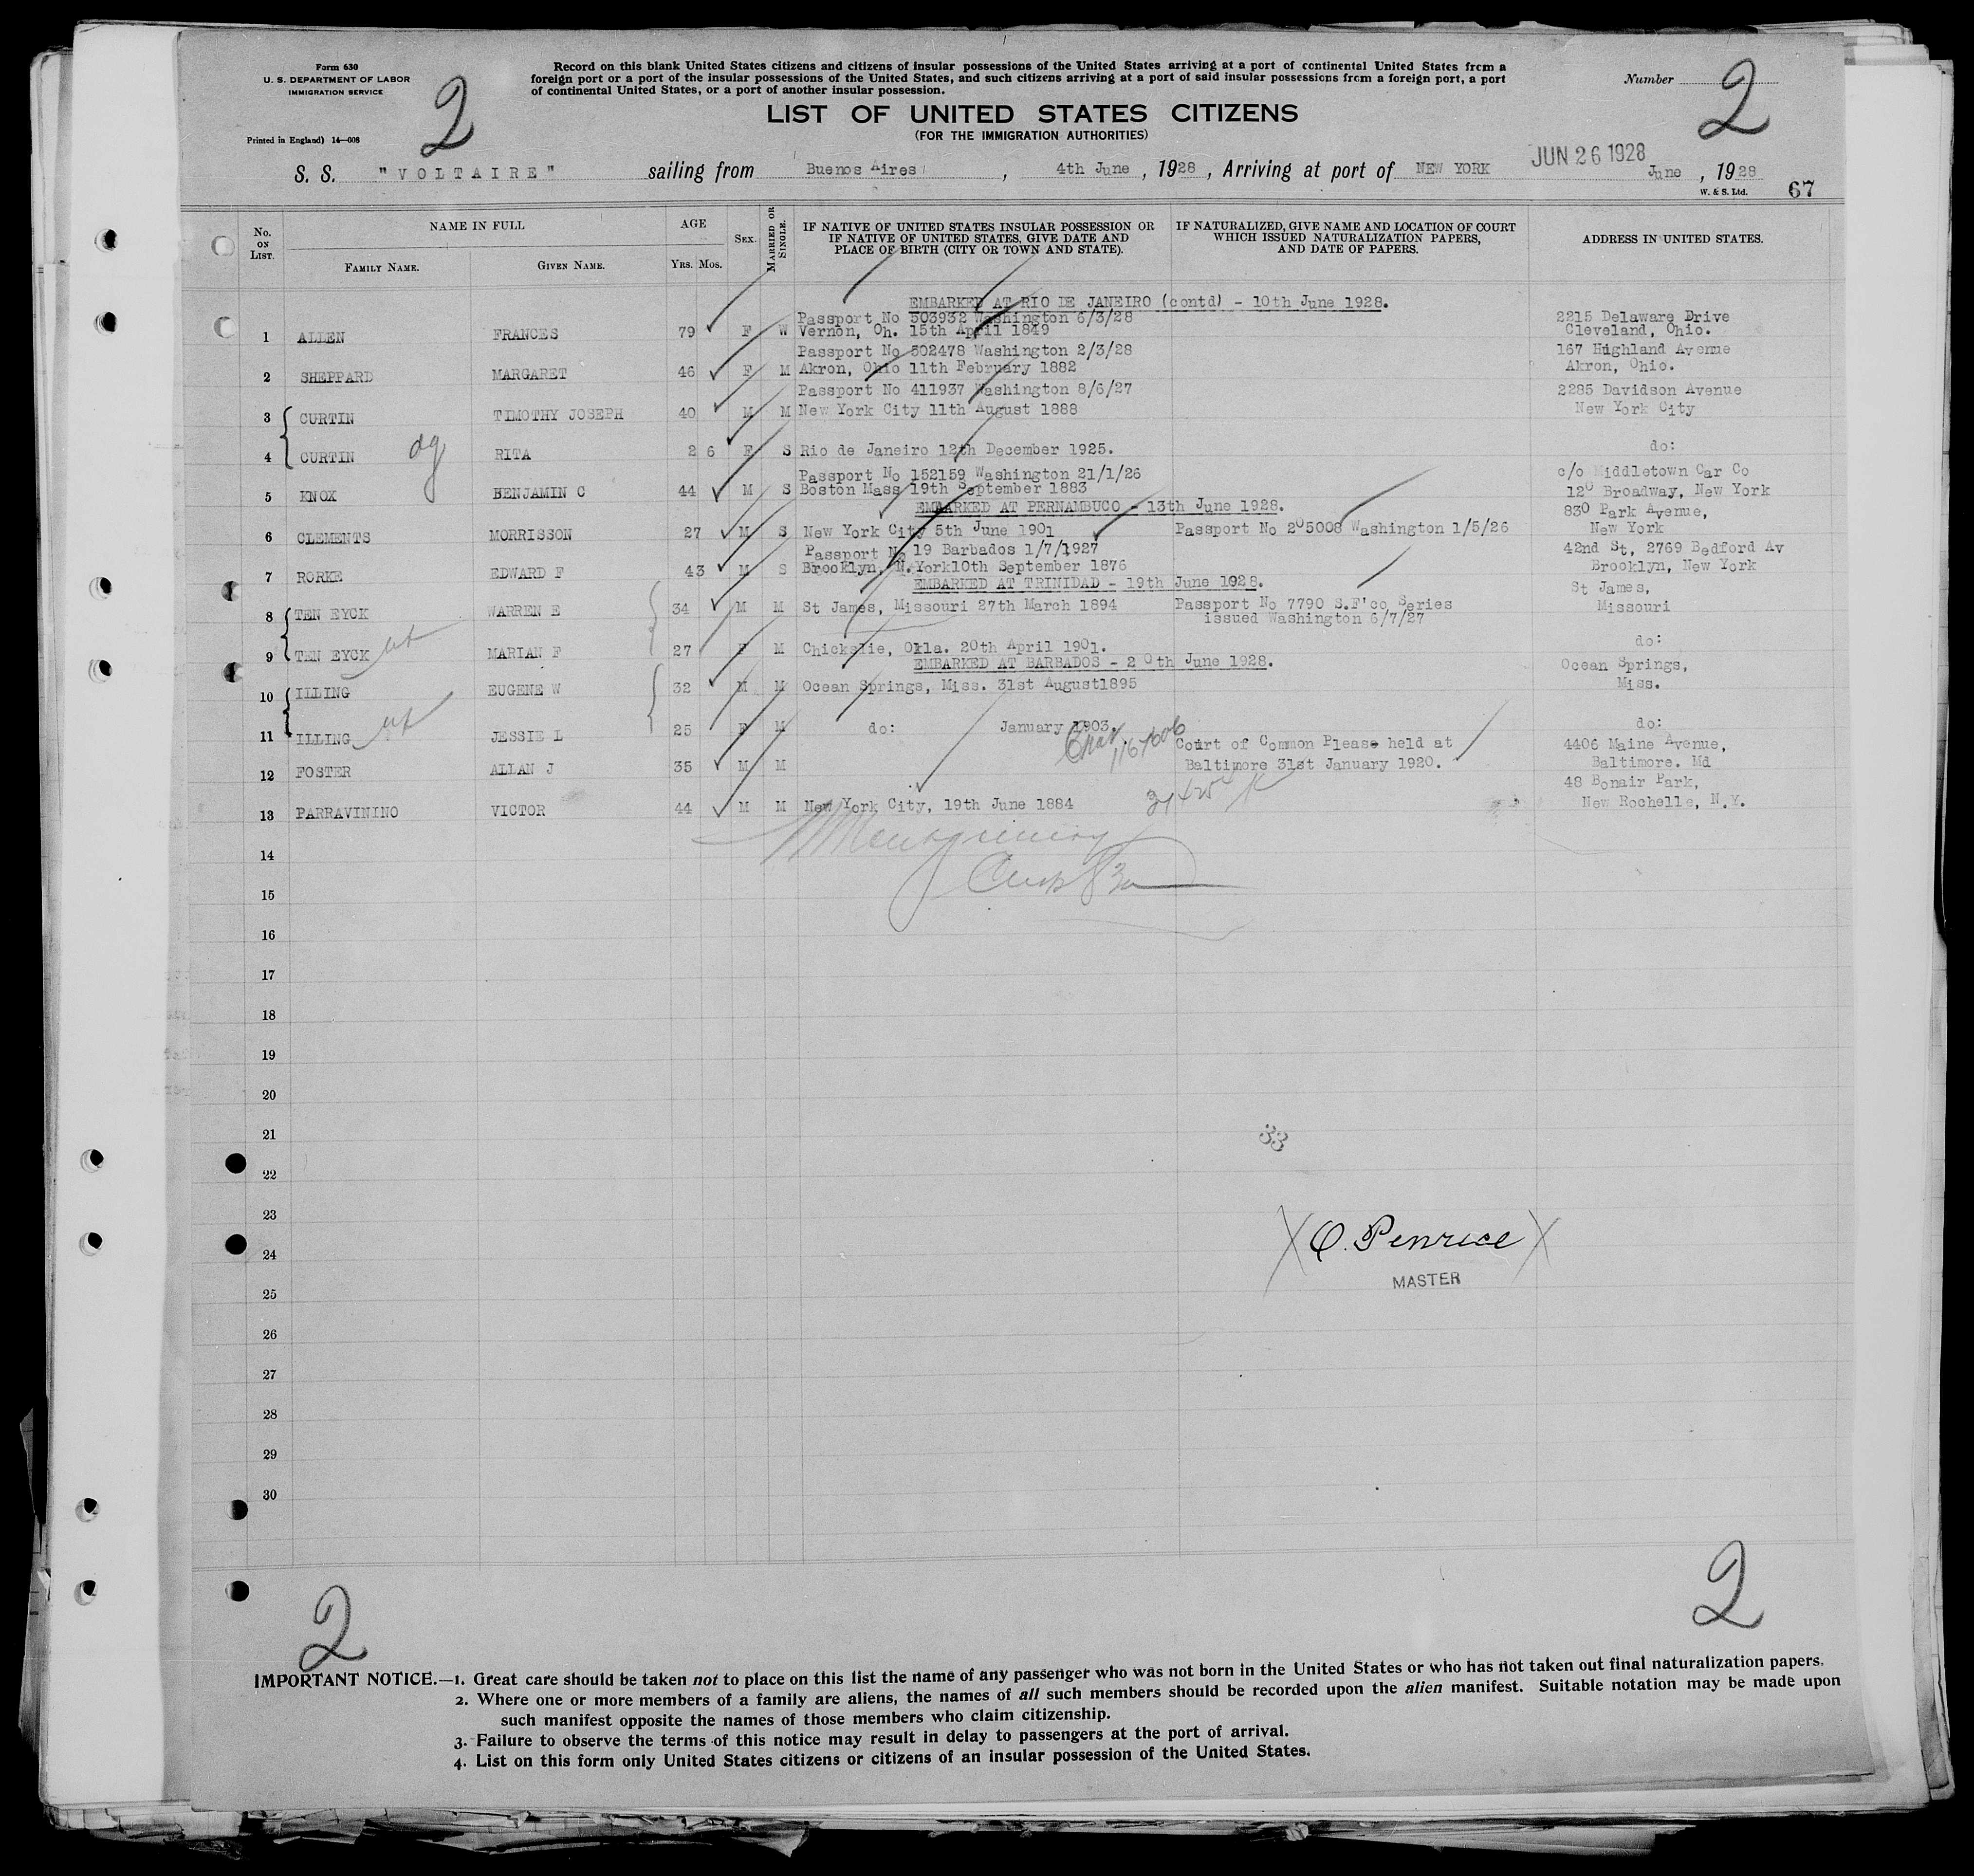 Form 630
U. S. DEPARTMENT OF LABOR
IMMIGRATION SERVICE
Printed in England) 14—608
2
Record on this blank United States citizens and citizens of insular possessions of the United States arriving at a port of continental United States from a
foreign port or a port of the insular possessions of the United States, and such citizens arriving at a port of said insular possessions from a foreign port, a port
of continental United States, or a port of another insular possession.
Number 2
LIST OF UNITED STATES CITIZENS
(FOR THE IMMIGRATION AUTHORITIES)
JUN 26 1928
S. S. "VOLTAIRE" sailing from Buenos Aires, 4th June, 1928, Arriving at port of NEW YORK June, 1928
W. & S. Ltd. 67
No. ON LIST. NAME IN FULL AGE SEX. MARRIED OR SINGLE. IF NATIVE OF UNITED STATES INSULAR POSSESSION OR IF NATIVE OF UNITED STATES, GIVE DATE AND PLACE OF BIRTH (CITY OR TOWN AND STATE). IF NATURALIZED, GIVE NAME AND LOCATION OF COURT WHICH ISSUED NATURALIZATION PAPERS, AND DATE OF PAPERS. ADDRESS IN UNITED STATES.
FAMILY NAME. GIVEN NAME. YRS. MOS.
EMBARKED AT RIO DE JANEIRO (contd) - 10th June 1928.
Passport No 503932 Washington 6/3/28 2215 Delaware Drive
1 ALLEN FRANCES 79 F W Vernon, Oh. 15th April 1849 Cleveland, Ohio.
Passport No 502478 Washington 2/3/28 167 Highland Avenue
2 SHEPPARD MARGARET 46 F M Akron, Ohio 11th February 1882 Akron, Ohio.
Passport No 411937 Washington 8/6/27 2285 Davidson Avenue
3 CURTIN TIMOTHY JOSEPH 40 M M New York City 11th August 1888 New York City
4 CURTIN RITA 2 6 F S Rio de Janeiro 12th December 1925. do:
Passport No 152159 Washington 21/1/26 c/o Middletown Car Co
5 KNOX BENJAMIN C 44 M S Boston Mass 19th September 1883 120 Broadway, New York
EMBARKED AT PERNAMBUCO - 13th June 1928. 830 Park Avenue,
6 CLEMENTS MORRISSON 27 M S New York City 5th June 1901 Passport No 205008 Washington 1/5/26 New York
Passport No 19 Barbados 1/7/1927 42nd St, 2769 Bedford Av
7 RORKE EDWARD F 43 M S Brooklyn, N.York10th September 1876 Brooklyn, New York
EMBARKED AT TRINIDAD - 19th June 1928. St James,
8 TEN EYCK WARREN E 34 M M St James, Missouri 27th March 1894 Passport No 7790 S.F'co Series Missouri
issued Washington 6/7/27
9 TEN EYCK MARIAN F 27 F M Chickalie, Okla. 20th April 1901. do:
EMBARKED AT BARBADOS - 20th June 1928. Ocean Springs,
10 ILLING EUGENE W 32 M M Ocean Springs, Miss. 31st August1895 Miss.
11 ILLING JESSIE L 25 F M do: January 1903. do:
Court of Common Please held at 4406 Maine Avenue,
12 FOSTER ALLAN J 35 M M Baltimore 31st January 1920. Baltimore. Md
48 Bonair Park,
13 PARRAVININO VICTOR 44 M M New York City, 19th June 1884 New Rochelle, N.Y.
14
15
16
17
18
19
20
21
33
22
23
24
O. Penrice
25
MASTER
26
27
28
29
30
2
2
IMPORTANT NOTICE.—1. Great care should be taken not to place on this list the name of any passenger who was not born in the United States or who has not taken out final naturalization papers.
2. Where one or more members of a family are aliens, the names of all such members should be recorded upon the alien manifest. Suitable notation may be made upon
such manifest opposite the names of those members who claim citizenship.
3. Failure to observe the terms of this notice may result in delay to passengers at the port of arrival.
4. List on this form only United States citizens or citizens of an insular possession of the United States.